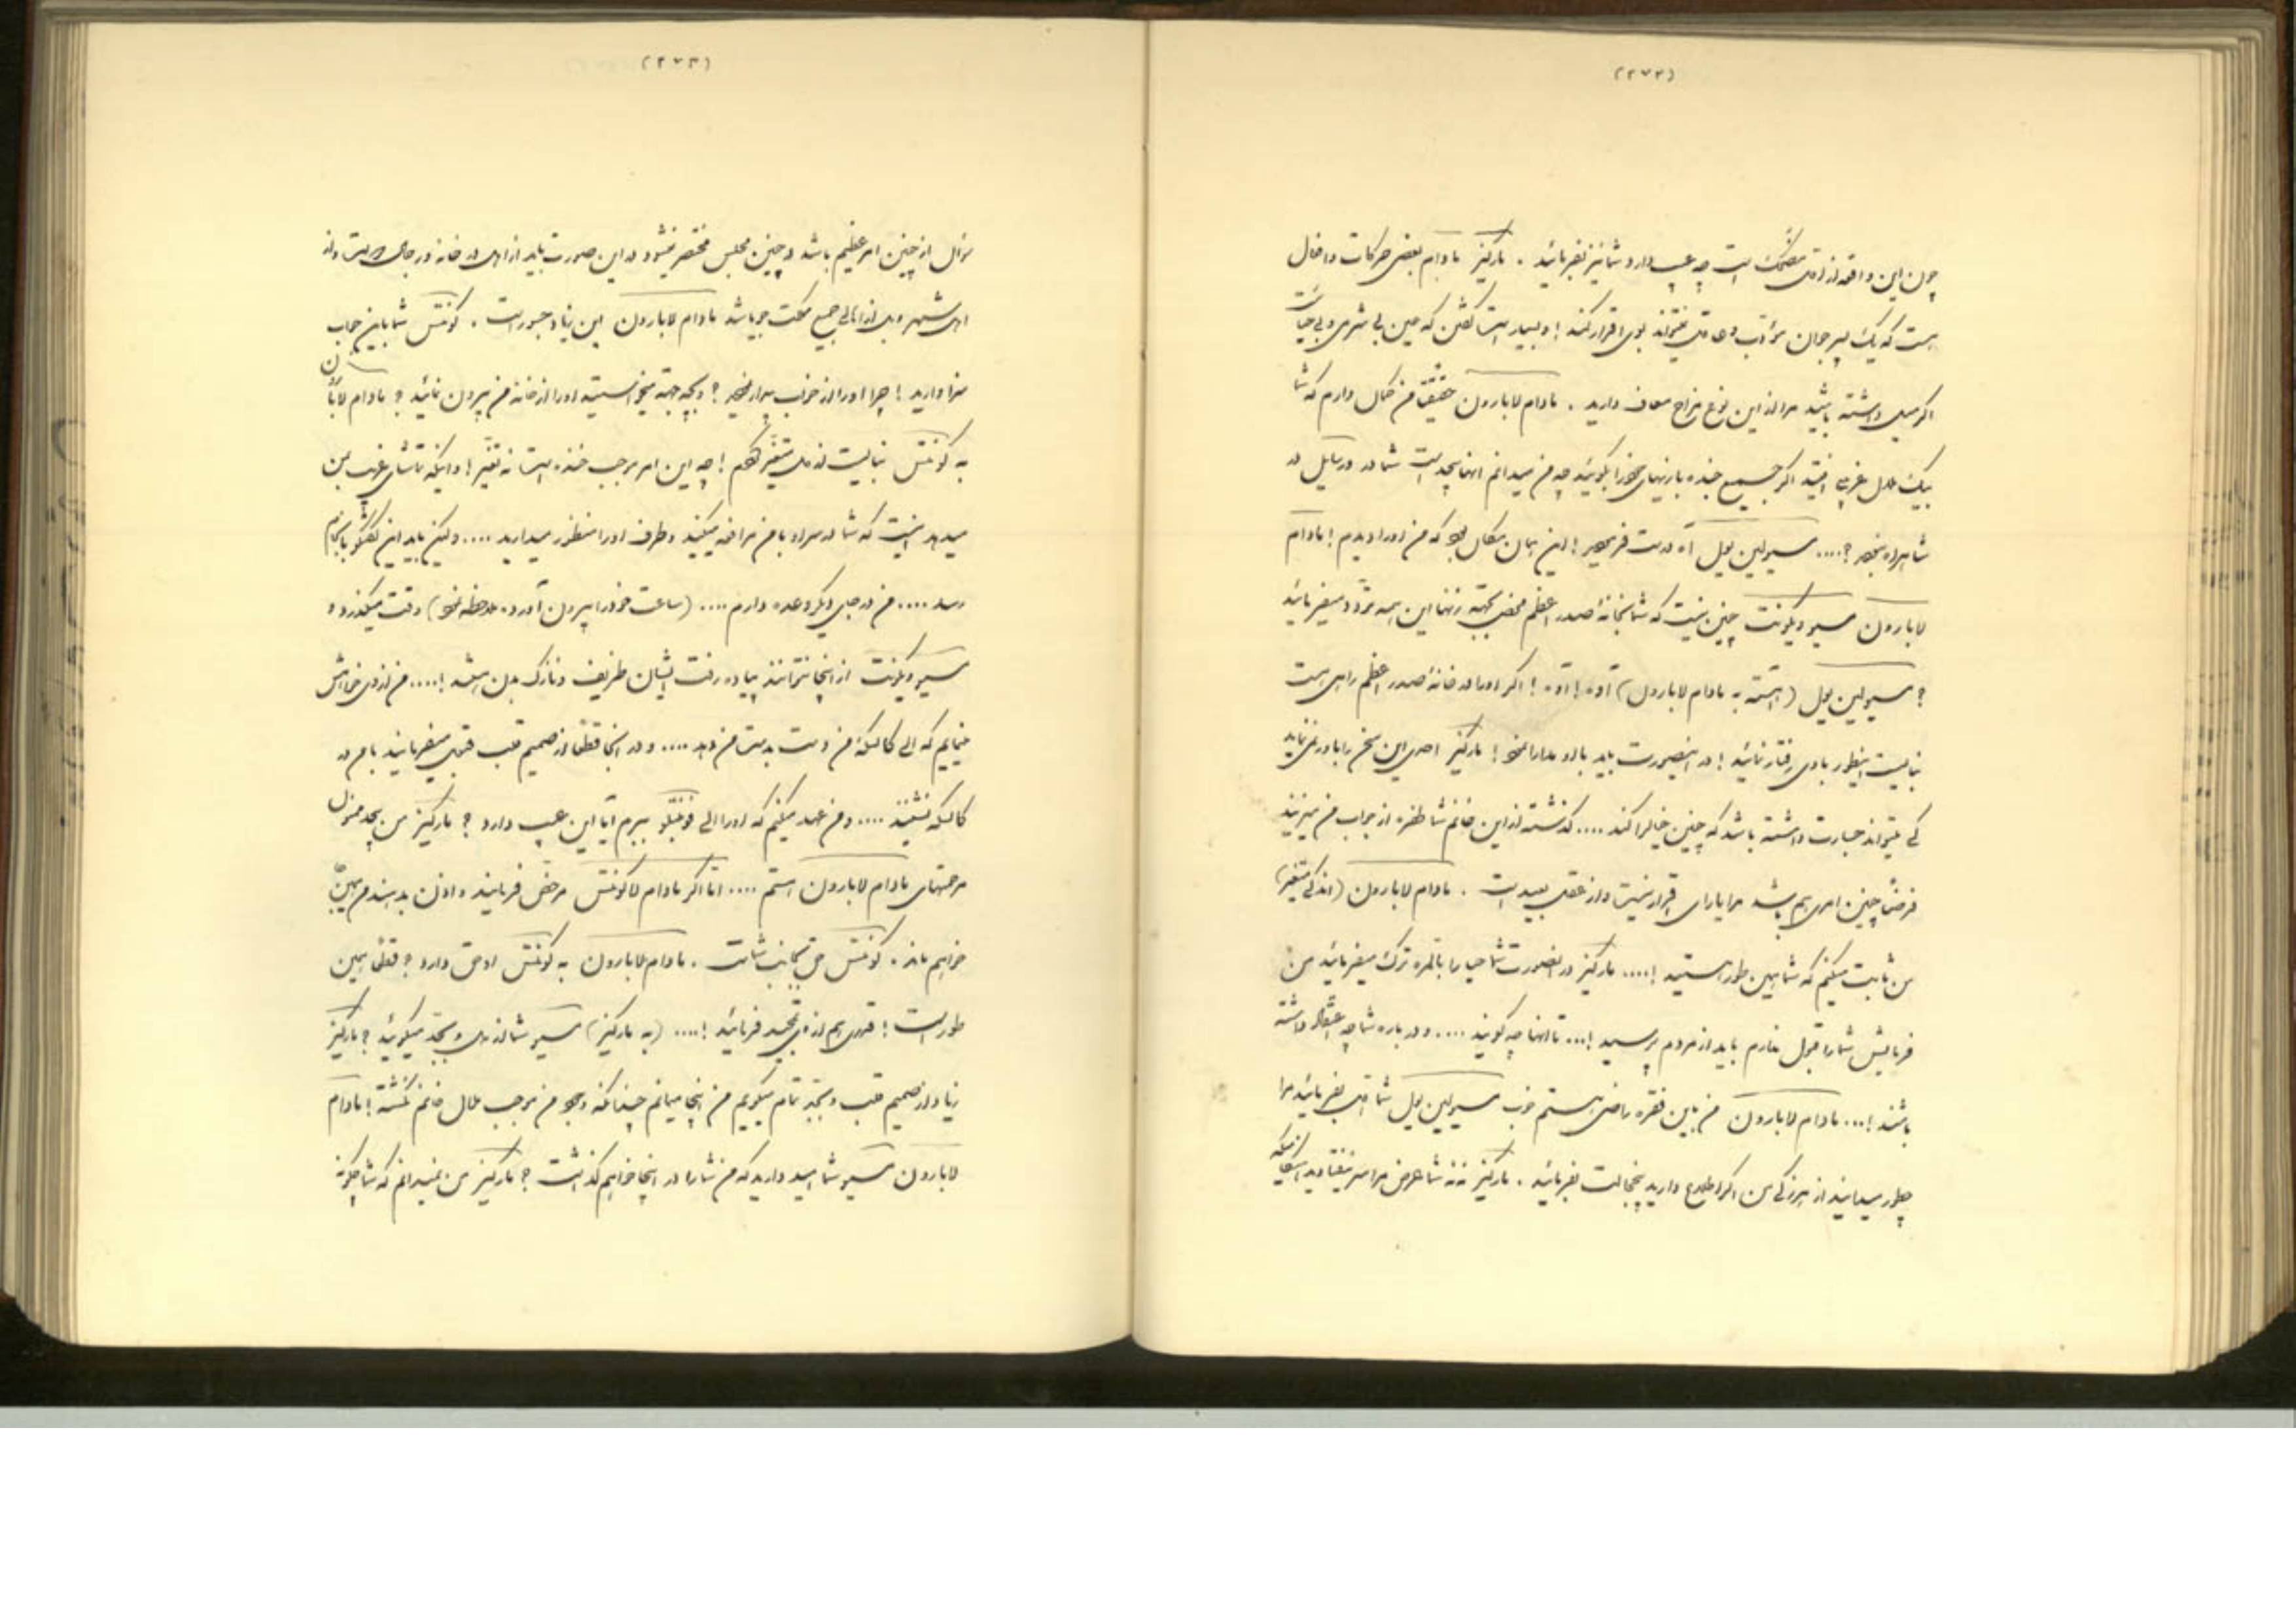 (۲۷۲)
چون این واقعه از اول مضحک است چه عیب دارد شما نیز بفرمائید . مارکیز مادام بعضی حرکات و افعال
هست که یک پسر جوان مؤدب و عاقل نمیتواند بوی اقرار کند ! و بسیار است گفتن که عین بی شرمی و بی حیائی است
اگر میل داشته باشید مرا از این نوع مزاح معاف دارید . مادام لابارون حقیقة من خیال دارم که شما
بیک ملال غریبی افتید اگر جمیع خنده بازیهای خود را بگوئید چه من میدانم آنها بچه است شما در ورسایل در
شاهراه نبودید ؟.... مسیو لین یول آه درست فرمودید ! این همان مکان بود که من او را دیدم ! مادام
لابارون مسیو ویکونت چنین نیست که شما بخانهٔ صدر اعظم محض بجهة زنها این همه تردد میفرمائید
؟ مسیو لین یول (آهسته به مادام لابارون) آوه ! آوه ! اگر او را در خانهٔ صدر اعظم راهی است
نبایست اینطور با وی رفتار نمائید ! در اینصورت باید با او مدارا نمود ! مارکیز احدی این سخن را باور نمی نماید
کی میتواند جسارت داشته باشد که چنین خیال را کند .... گذشته از این خانم شما طفره از جواب من میزنید
فرضاً چنین امری هم باشد مرا یارای اقرار نیست و از عقل بعید است . مادام لابارون (اندکی متغیر)
من ثابت میکنم که شما همین طور هستید !.... مارکیز در اینصورت شما حیا را بالمره ترک میفرمائید من
فرمایش شما را قبول ندارم باید از مردم پرسید !... تا آنها چه گویند .... و در باره شما چه اعتقاد داشته
باشند !... مادام لابارون من باین فقره راضی هستم خوب مسیو لین یول شما اول بفرمائید مرا
چطور میدانید از هرزگی من اگر اطلاع دارید بی خجالت بفرمائید . مارکیز نه نه شما عرض مرا سر نیفتادید از آنکه
(۲۷۳)
سؤال از چنین امر عظیم باشد و چنین مجلس مختصر نمیشود در این صورت باید از اهل در خانه و رجال دولت و از
اهل شهر و بل از اهالی جمیع مملکت جویا شد مادام لابارون این زیاد جسور است . کونتس شما باین جواب
سزا وارید ! چرا او را از خواب بیدار نمودید ؟ و بچه جهة میخواستید او را از خانه من بیرون نمائید ؟ مادام لابارون
به کونتس نبایست از من متغیر شوید ! چه این امر موجب خنده است نه تغیر ! و اینکه تماشای غریب بمن
میدهد اینست که شما در سر او با من مرافعه میکنید و طرف او را منظور میدارید .... ولیکن باید این گفتگو بانجام
رسد .... من در جای دیگر وعده دارم .... (ساعت خود را بیرون آورده ملاحظه نمود) وقت میگذرد و
مسیو ویکونت از اینجا نتوانند پیاده رفت ایشان ظریف و نازک بدن هستند !.... من از وی خواهش
مینمایم که الی کالسکهٔ من دست بدست من دهد .... و در آنجا قطعاً از صمیم قلب قبول میفرمایند با من در
کالسکه نشینند .... و من عهد میکنم که او را الی فونتنبلو ببرم آیا این عیب دارد ؟ مارکیز من بیحد ممنون
مرحمتهای مادام لابارون هستم .... اما اگر مادام لاکونتس مرخص فرمایند و اذن بدهند من همین جا
خواهم ماند . کونتس حق بجانب شماست . مادام لابارون به کونتس او حق دارد ؟ قطعاً همین
طور است ! قدری هم از وی تمجید فرمائید !.... (به مارکیز) مسیو شما از روی جد میگوئید ؟ مارکیز
زیاد از صمیم قلب و بجد تمام میگویم من اینجا میمانم چنانکه وجود من موجب ملال خانم نگشته ! مادام
لابارون مسیو شما امید دارید که من شما را در اینجا خواهم گذاشت ؟ مارکیز من نمیدانم که شما چگونه